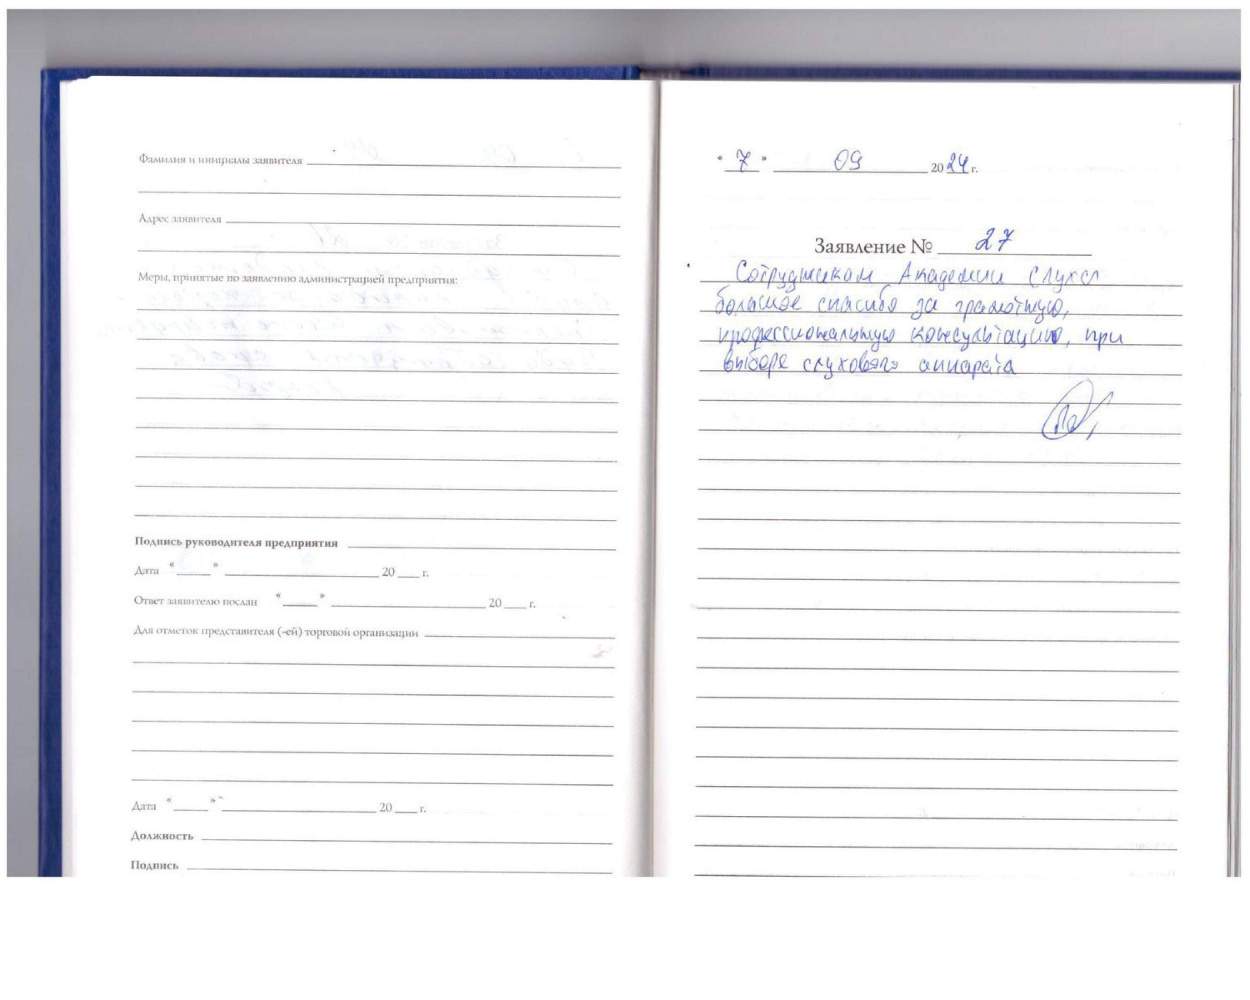 Фамилия и инициалы заявителя
Адрес заявителя
Меры, принятые по заявлению администрацией предприятия:
Подпись руководителя предприятия
Дата " " 20 г.
Ответ заявителю послан " " 20 г.
Для отметок представителя (-ей) торговой организации
Дата " " 20 г.
Должность
Подпись
" 7 " 09 2024 г.
Заявление № 27
Сотрудникам Академии Слуха
большое спасибо за грамотную,
профессиональную консультацию, при
выборе слухового аппарата